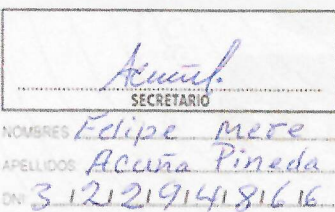 Acuña
SECRETARIO
NOMBRES Edipe Mere
APELLIDOS Acuña Pineda
DNI 32294866